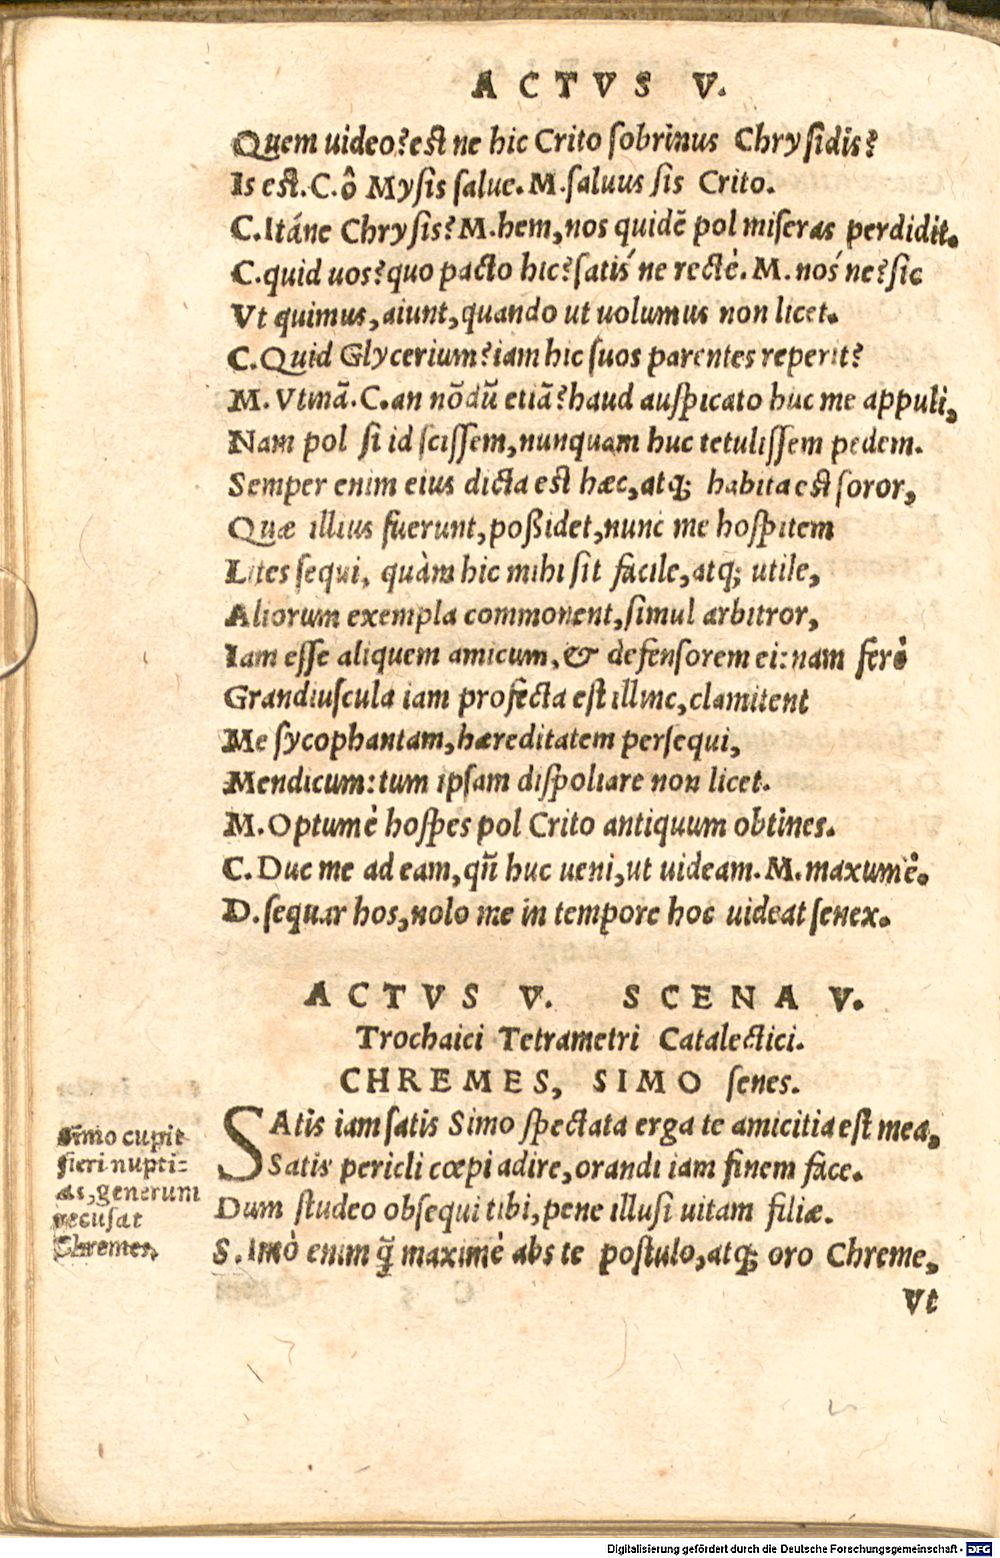 ACTVS V.
Quem uideo? est ne hic Crito sobrinus Chrysidis?
Is est. C. ô Mysis salue. M. saluus sis Crito.
C. Itáne Chrysis? M. hem, nos quidē pol miseras perdidit.
C. quid uos? quo pacto hic? satis´ ne rectè. M. nos´ ne? sic
Vt quimus, aiunt, quando ut uolumus non licet.
C. Quid Glycerium? iam hic suos parentes reperit?
M. Vtinā. C. an nōdū etiā? haud auspicato huc me appuli,
Nam pol si id scissem, nunquam huc tetulissem pedem.
Semper enim eius dicta est hæc, atq; habita est soror,
Quæ illius fuerunt, poßidet, nunc me hospitem
Lites sequi, quàm hic mihi sit facile, atq; utile,
Aliorum exempla commonent, simul arbitror,
Iam esse aliquem amicum, & defensorem ei: nam ferè
Grandiuscula iam profecta est illinc, clamitent
Me sycophantam, hæreditatem persequi,
Mendicum: tum ipsam dispoliare non licet.
M. Optumè hospes pol Crito antiquum obtines.
C. Duc me ad eam, qñ huc ueni, ut uideam. M. maxumè.
D. sequar hos, nolo me in tempore hoc uideat senex.
ACTVS V. SCENA V.
Trochaici Tetrametri Catalectici.
CHREMES, SIMO senes.
SAtis iam satis Simo spectata erga te amicitia est mea,
Satis pericli cœpi adire, orandi iam finem face.
Dum studeo obsequi tibi, pene illusi uitam filiæ.
S. Imò enim q̄ maximè abs te postulo, atq; oro Chreme,
Vt
Simo cupit
fieri nupti-
as, generum
recusat
Chremes.
Digitalisierung gefördert durch die Deutsche Forschungsgemeinschaft - DFG